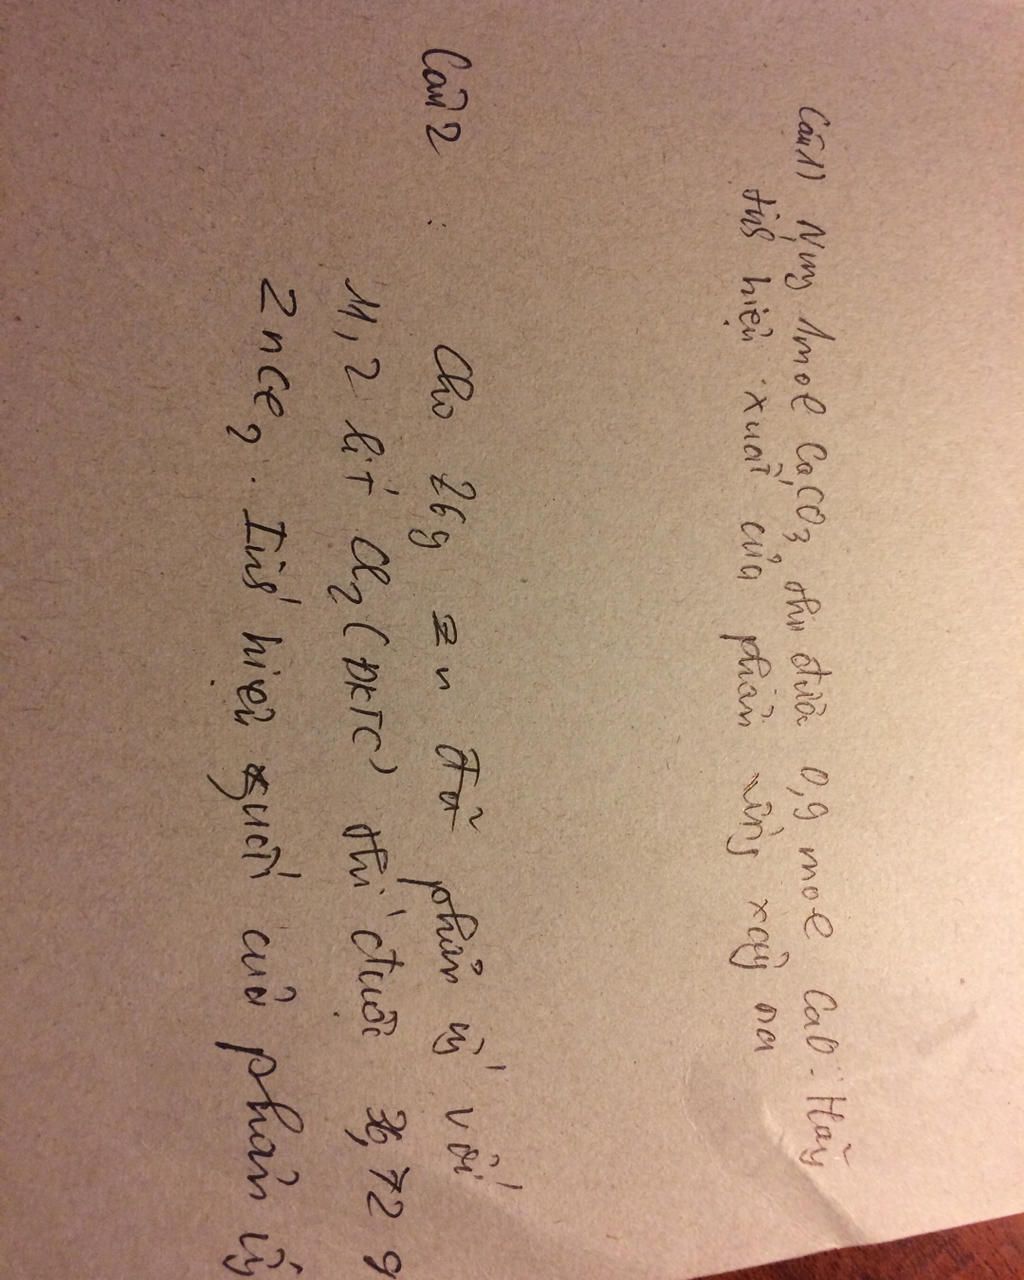 Câu 1) Nung 1mol CaCO3 thu được 0,9 mol CaO. Hãy
tính hiệu xuất của phản ứng xảy ra
Câu 2 : Cho 26g Zn đã phản ứ với
11,2 lít Cl2 (ĐKTC) thì được 36,72 g
ZnCl2. Tính hiệu xuất của phản ứ